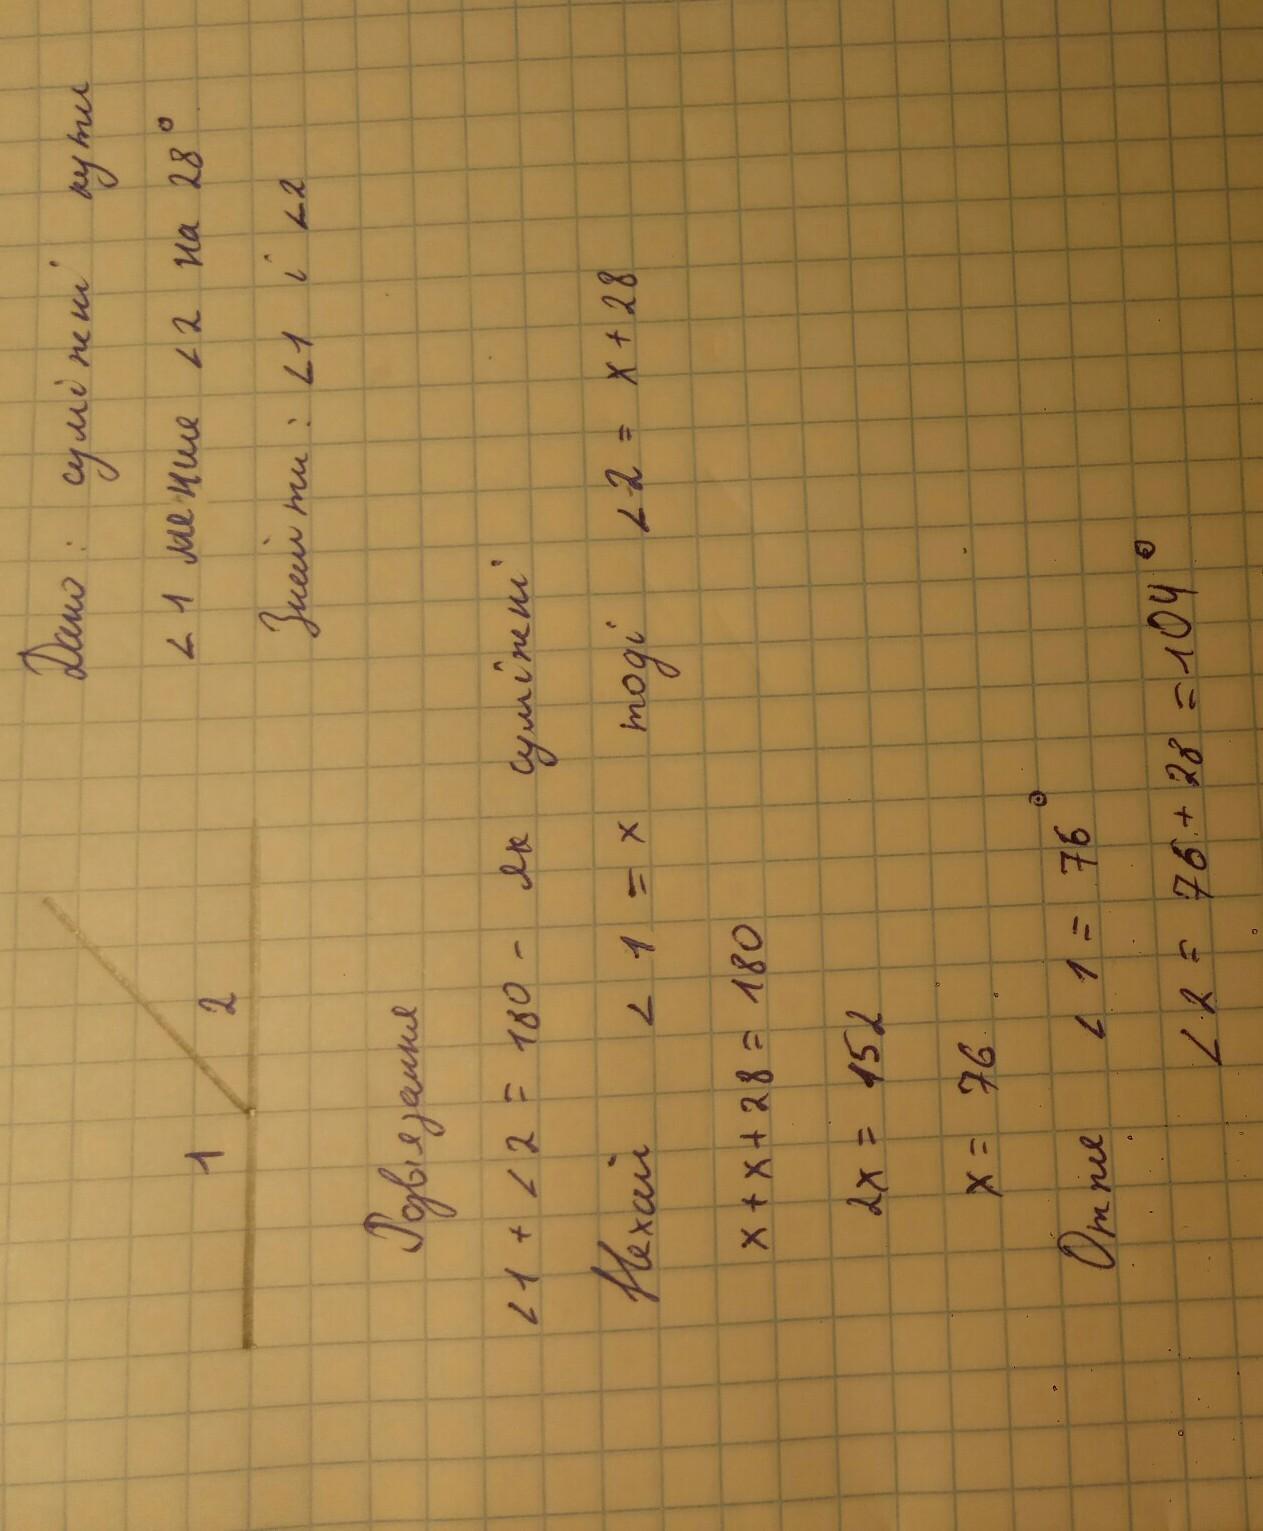 Дано: суміжні кути
∠1 менше ∠2 на 28°
Знайти: ∠1 і ∠2
1 2
Розвязання
∠1 + ∠2 = 180 - як суміжні
Нехай ∠1 = x тоді ∠2 = x + 28
x + x + 28 = 180
2x = 152
x = 76
Отже ∠1 = 76°
∠2 = 76 + 28 = 104°